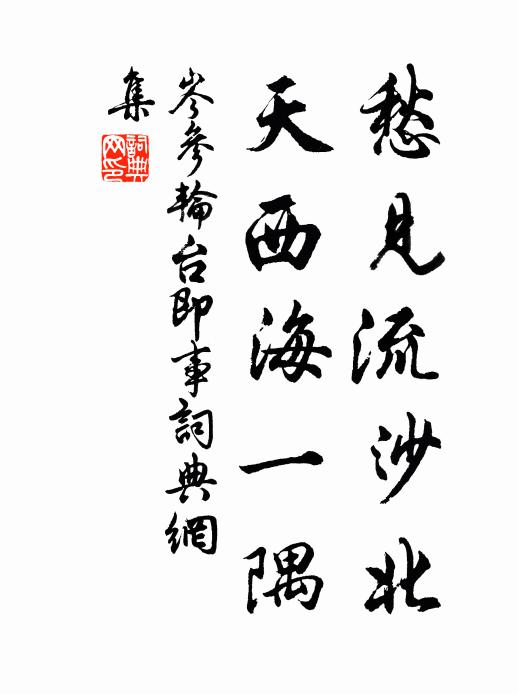 愁見流沙北
天西海一隅
岑參輪台即事詞典網
集
詞典
网印